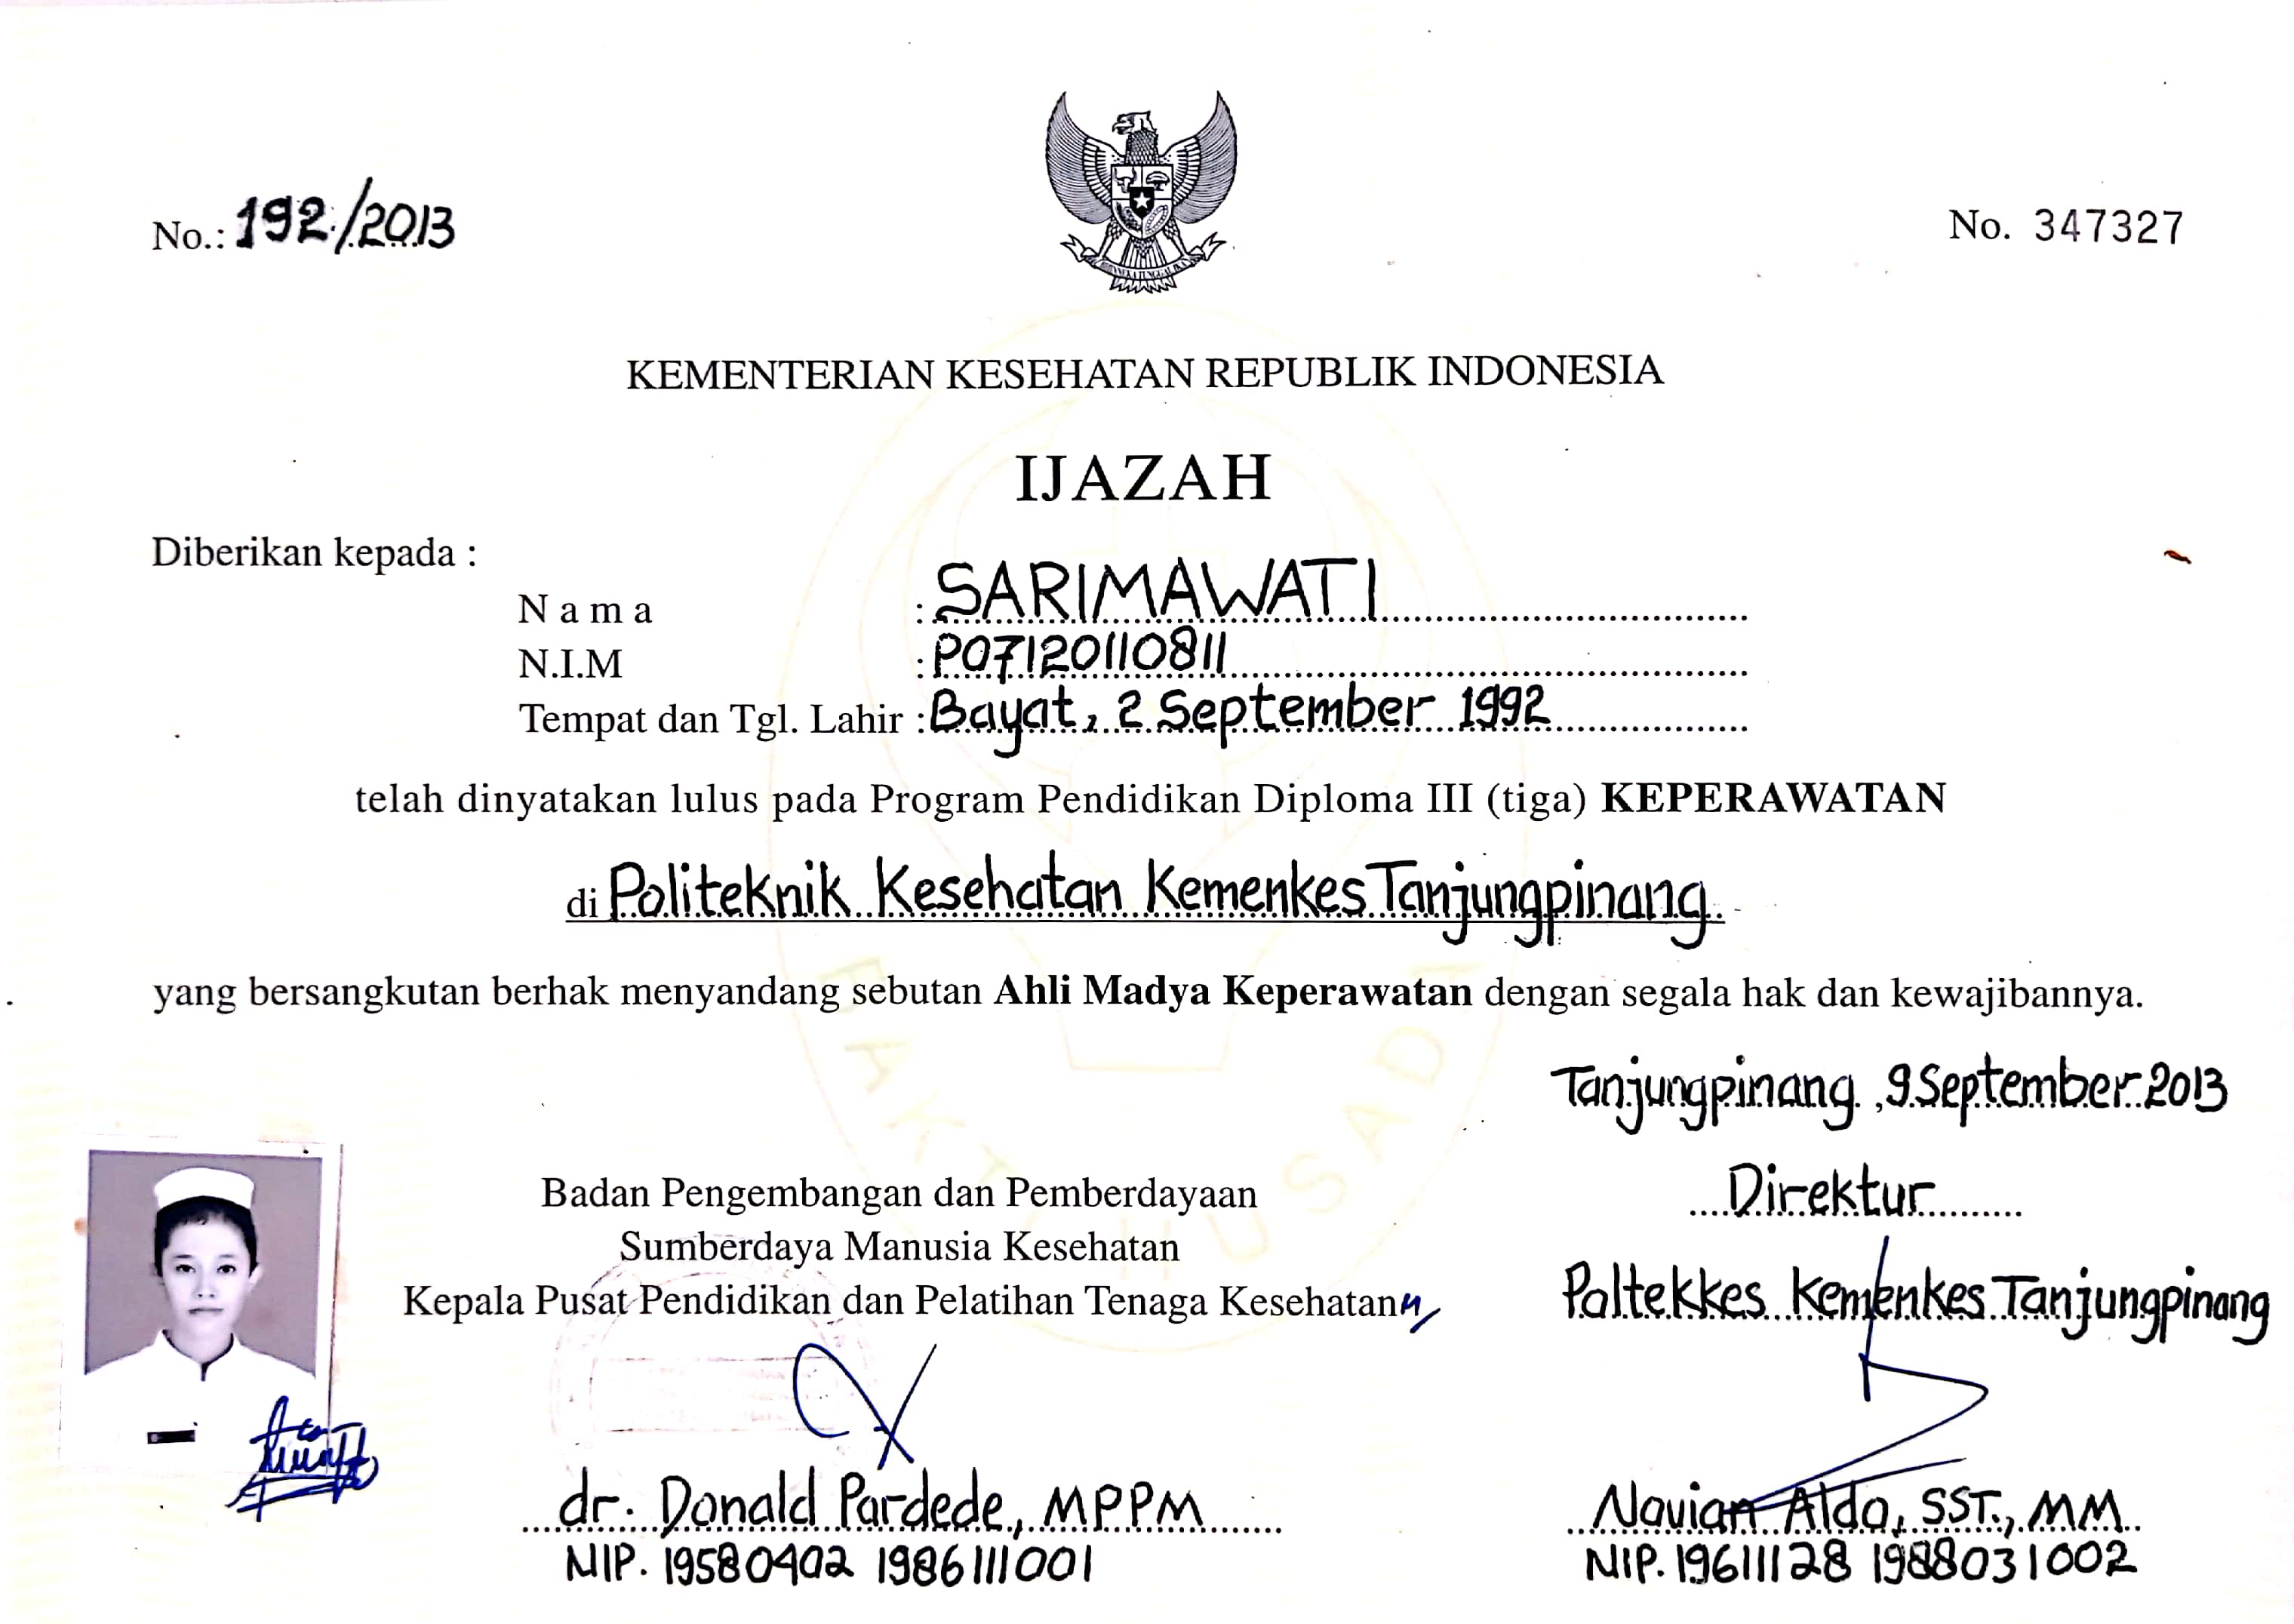 No.: 192/2013
No. 347327
KEMENTERIAN KESEHATAN REPUBLIK INDONESIA
IJAZAH
Diberikan kepada :
Nama : SARIMAWATI
N.I.M : P07120110811
Tempat dan Tgl. Lahir : Bayat, 2 September 1992
telah dinyatakan lulus pada Program Pendidikan Diploma III (tiga) KEPERAWATAN
di Politeknik Kesehatan Kemenkes Tanjungpinang
yang bersangkutan berhak menyandang sebutan Ahli Madya Keperawatan dengan segala hak dan kewajibannya.
BAKTI HUSADA
Tanjungpinang, 9 September 2013
Badan Pengembangan dan Pemberdayaan
Sumberdaya Manusia Kesehatan
Kepala Pusat Pendidikan dan Pelatihan Tenaga Kesehatan
dr. Donald Pardede, MPPM
NIP. 19580402 1986111001
Direktur
Poltekkes Kemenkes Tanjungpinang
Novian Aldo, SST., MM
NIP. 19611128 1988031002